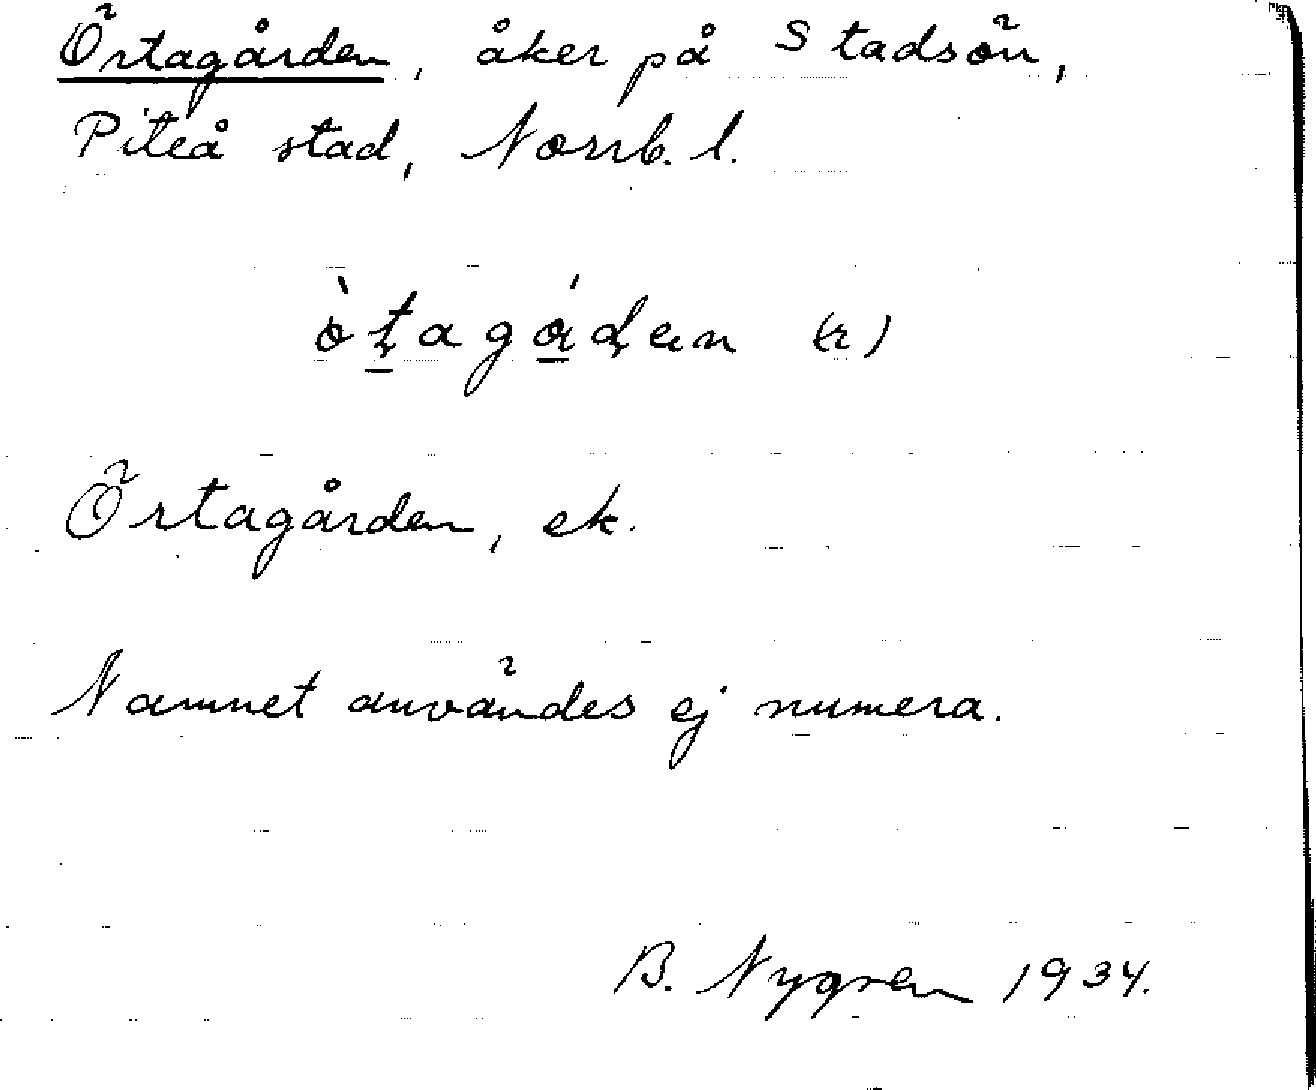 Örtagården, åker på Stadsön,
Piteå stad, Norrb. l.
òtagáden (r)
Örtagården, ek.
Namnet användes ej numera.
B. Nygren 1934.